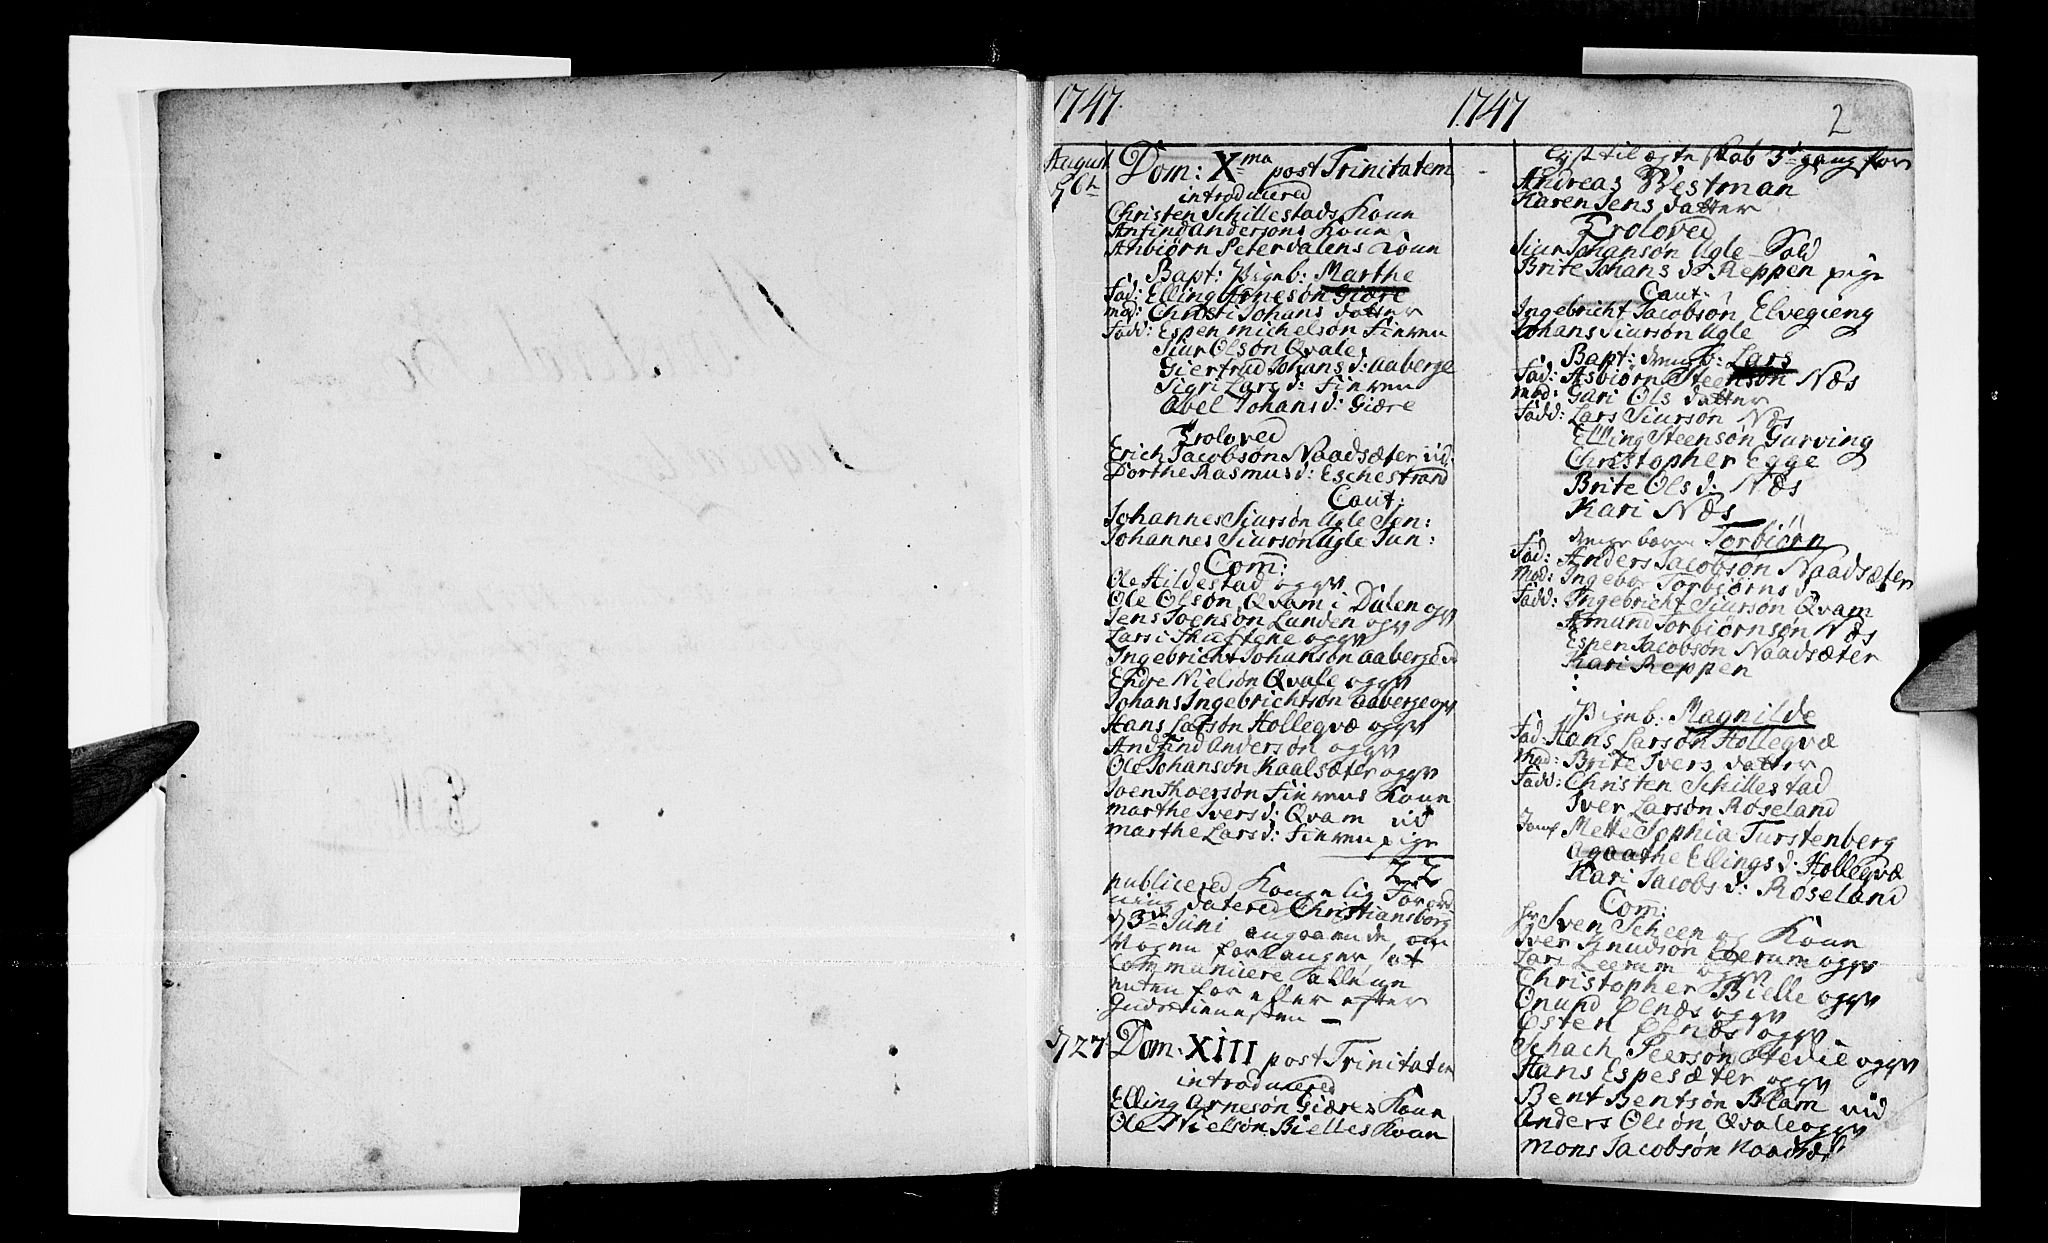 1747.
1747
2
August
d 6te
Dom: Xma post Trinitatem
introducered
Christen Schillestads Kone
Anfind andersøns Kone
Asbiørn Peterdalens Kone
Bapt: Pigeb: Marthe
Fad: Elling Arnesøn Giære
mod: Christi Johans datter
Fadd: Espen michelsøn Finnen
Siur Olsøn Qvale
Giertrud Johans d: aaberge
Sigri Lars d: Finnen
Abel Johans d: Giære
Troloved
Erich Jacobsøn Naadsæter
Dorthe Rasmus d: Eschestrand
Caut:
Johannes Siursøn Ugle Sen:
Johannes Siursøn Ugle Jun:
Com:
Ole Hildestad og
Ole Olsøn Qvam i Dalen og
Jens Joensøn Lunden og
Lars i
Ingebricht Johansøn aaberge
Endre Nielsøn Qvale og
Johans Ingebrichtsøn aaberge
Hans Larsøn Hollegvæ og
Andfind andersøn og
Ole Johansøn Kaalsæter og
Joen Finnens Kone
Marthe Ivers d: Qvam
marthe Lars d: Finnen pige
22
publicered Kongelig Forord
ning datered Christiansborg
d 3de Juni angaaende, om
Nogen forlanger, at
Communicere
enten for eller efter
Gudstienesten —
d 27
Dom: XIII post Trinitatem
introducered
Elling Arnesøn Giæres Kone
Ole Nielsøn Bielles Kone
Lyst til ægteskab 3de gang for
Andreas Westman
Karen Jens datter
Trolored
Siur Johansøn Ugle Sold
Brite Johans d: Reppen pige
Caut:
Ingebricht Jacobsøn Elvegieng
Johans Siursøn Ugle
Bapt: drengb: Lars
Fad: Asbiørn Steensøn Næs
mod: Gari Ols datter
Fadd: Lars Siursøn Næs
Elling Steensøn Gurving
Christopher Egge
Brite Ols d: Næs
Kari Næs
drenge barn Torbiørn
Fad: Anders Jacobsøn Naadsæter
Mod: Ingebor Torbiørns d:
Fadd: Ingebricht Siursøn Qvam
Amund Torbiørnsøn Næs
Espen Jacobsøn Naadsæter
Kari Reppen
Pigeb: Magnilde
Fad: Hans Larsøn Hollegvæ
Mod: Brite Ivers datter
Fadd: Christen Schillestad
Iver Larsøn Røseland
Jomf Mette Sophia Furstenberg
Agaathe Ellings d: Hollegvæ
Kari Jacobs d: Røseland
Com:
Hr Iven Scheen og Kone
Iver Knudsøn Leerum og
Lars Leerum og
Christopher Bielle og
Onund Elnæs og
Østen Elnæs og
Schach Peersøn Hedie og
Hans Espesæter og
Bent Bentsøn Blam
Anders Olsøn Qvale og
Mons Jacobsøn Naadsæt